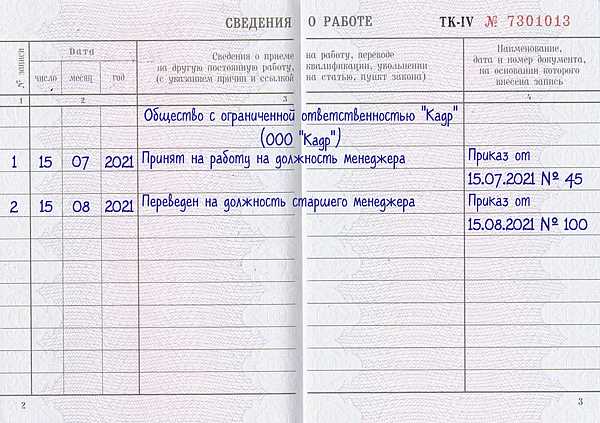 СВЕДЕНИЯ О РАБОТЕ ТК-IV № 7301013
№ записи
Дата
число месяц год
Сведения о приеме на работу, переводе
на другую постоянную работу, квалификации, увольнении
(с указанием причин и ссылкой на статью, пункт закона)
Наименование,
дата и номер документа,
на основании которого
внесена запись
1 2 3 4
Общество с ограниченной ответственностью "Кадр"
(ООО "Кадр")
1 15 07 2021 Принят на работу на должность менеджера Приказ от
15.07.2021 № 45
2 15 08 2021 Переведен на должность старшего менеджера Приказ от
15.08.2021 № 100
2 3